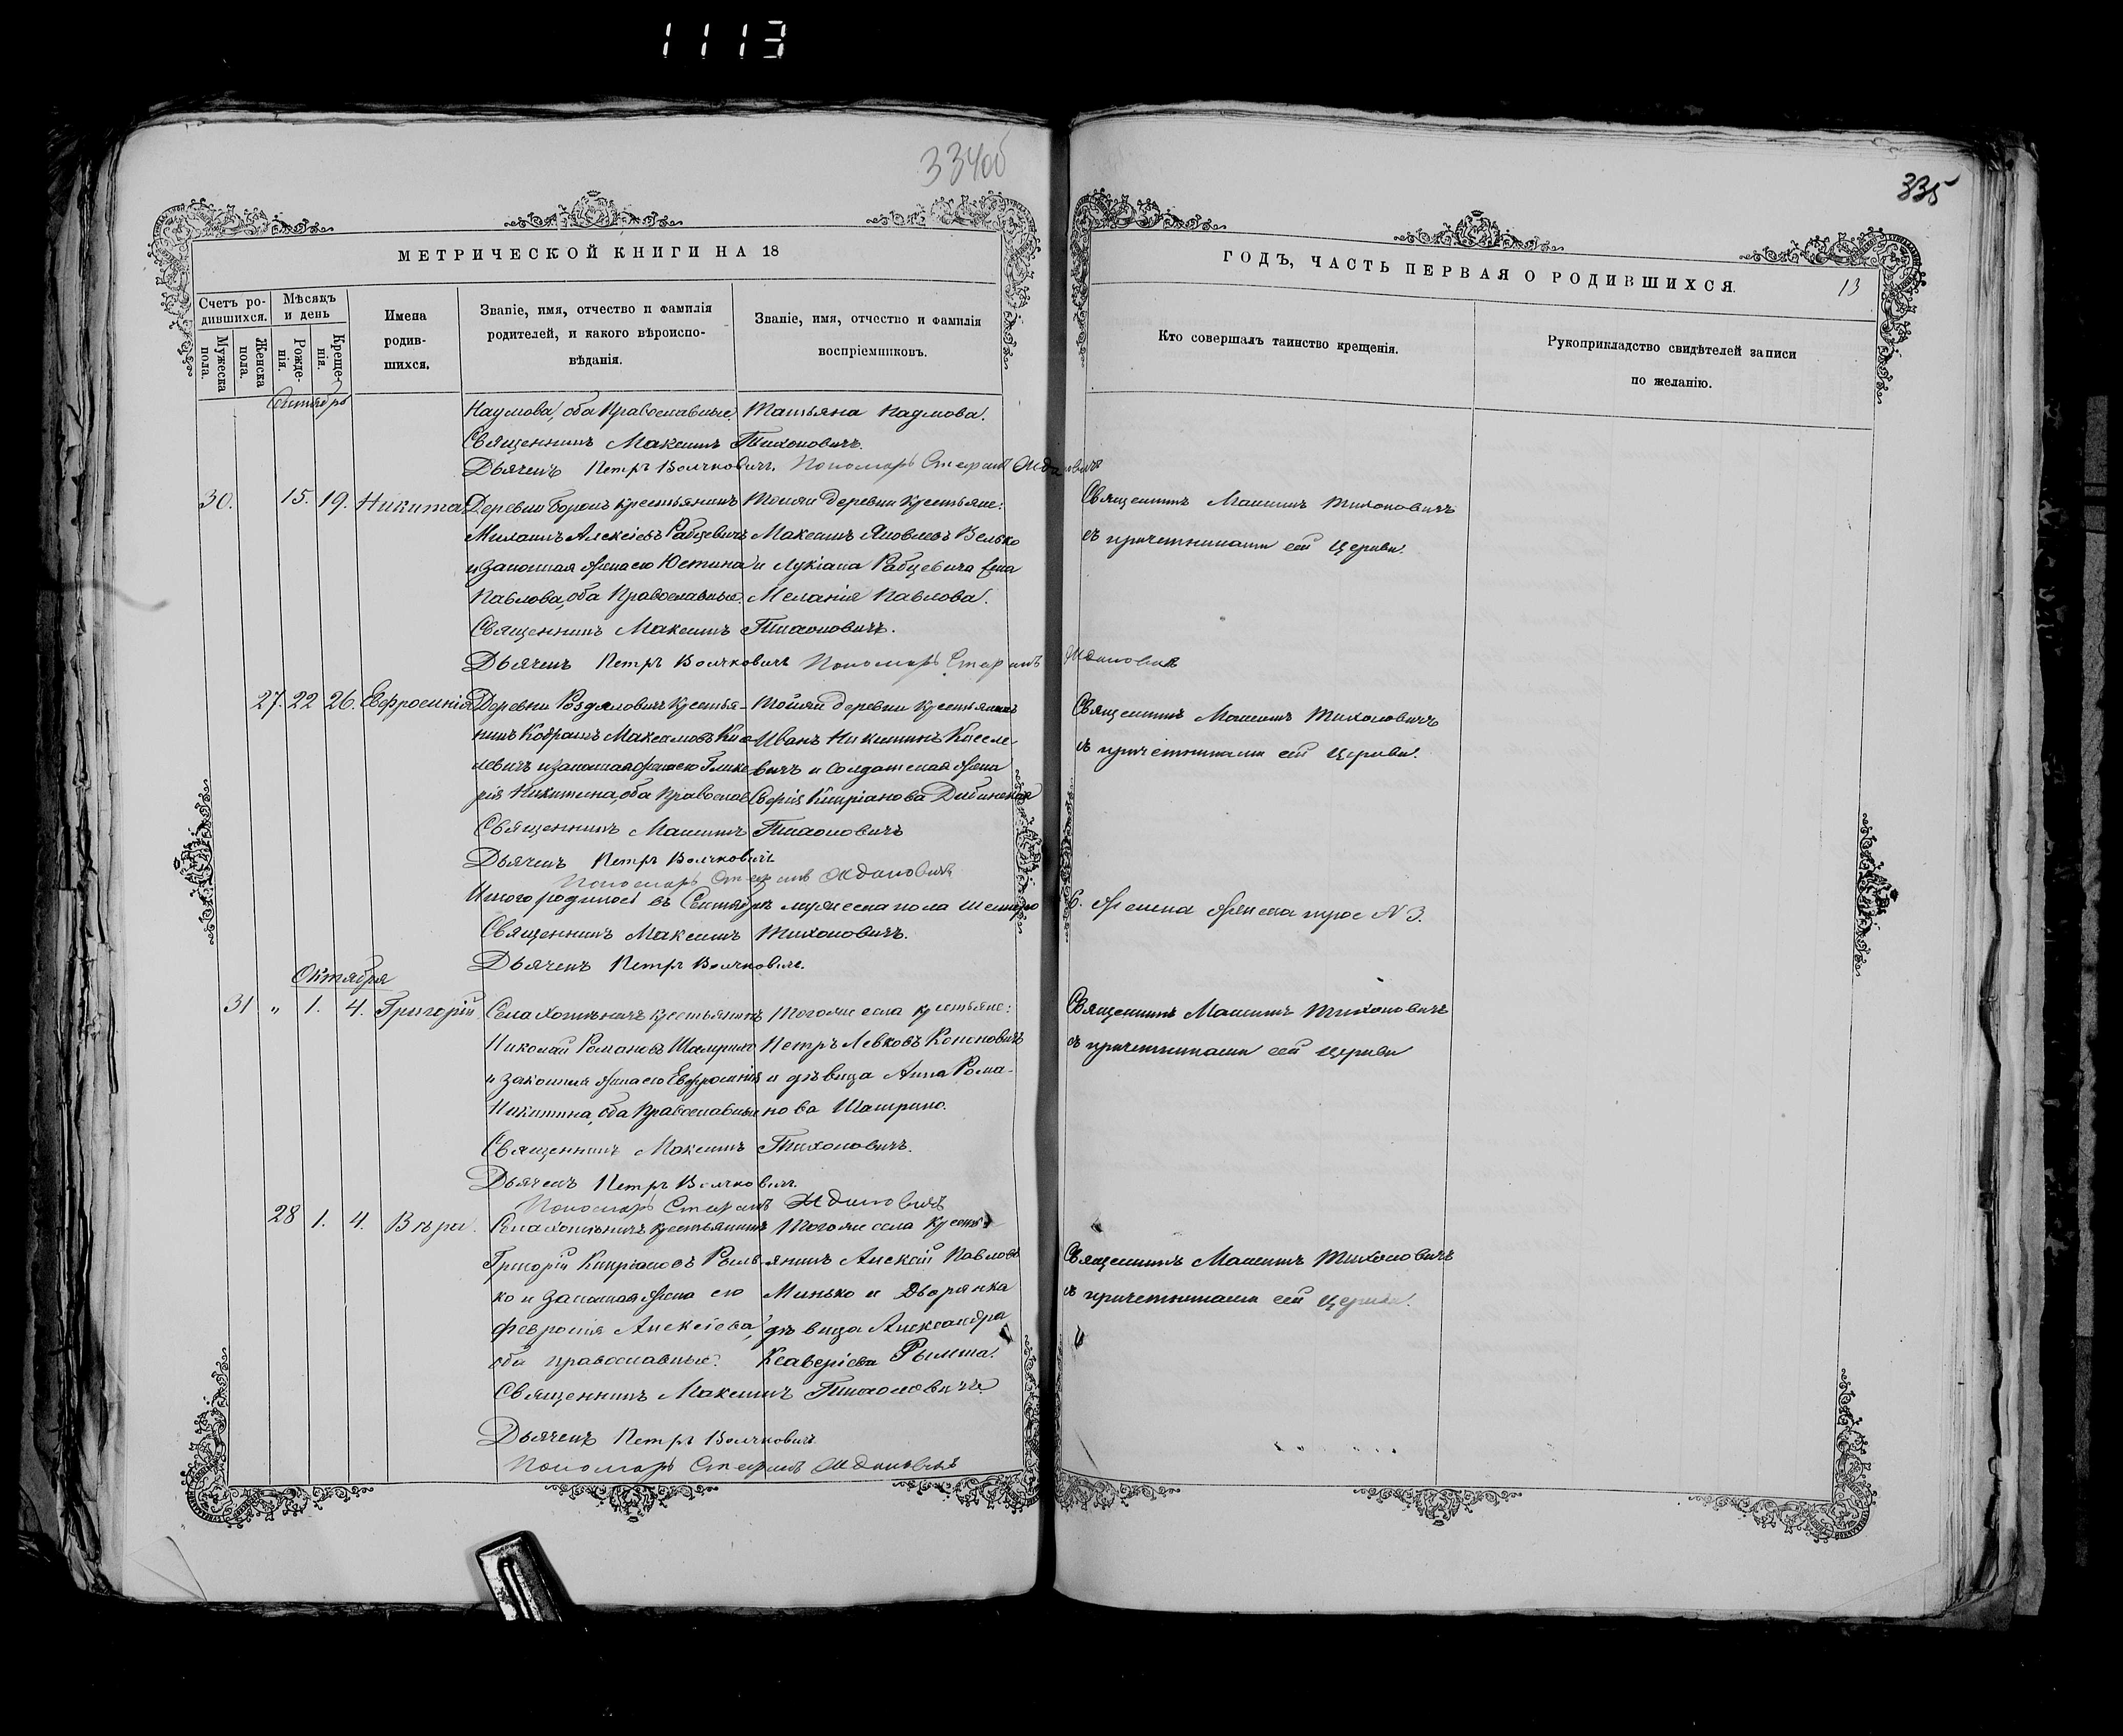 1113
334об
335
МЕТРИЧЕСКОЙ КНИГИ НА 18
Счетъ ро-
дившихся.
Мужеска
пола.
Женска
пола.
Мѣсяцъ
и день
Рожде-
нія.
Креще-
нія.
Имена
родив-
шихся.
Званіе, имя, отчество и фамилія
родителей, и какого вѣроиспо-
вѣданія.
Званіе, имя, отчество и фамилія
воспріемниковъ.
ГОДЪ, ЧАСТЬ ПЕРВАЯ О РОДИВШИХСЯ.
13
Кто совершалъ таинство крещенія.
Рукоприкладство свидѣтелей записи
по желанію.
Сентябрь
Наумова, оба Православные. Татьяна Наумова.
Священникъ Максимъ Тихоновичъ.
Дьячекъ Петръ Волчковичъ. Пономарь Стефанъ
30. 15. 19. Никита Деревни крестьянинъ Тойже деревни крестьяне: Священникъ Максимъ Тихоновичъ
Алексіевъ Рабцевичъ Максимъ Яковлевъ Велько съ причетниками сей Церкви.
и законная жена его Юстина и Лукіана Рабцевича жена
Павлова, оба Православные. Меланія Павлова.
Священникъ Максимъ Тихоновичъ.
Дьячекъ Петръ Волчковичъ Пономарь Стефанъ
27. 22 26. Евфросинія Деревни Роздяловичъ крестья- Тойже деревни крестьянинъ Священникъ Максимъ Тихоновичъ
нинъ Максимовъ Кисе- Иванъ Никитинъ Киселе- съ причетниками сей Церкви.
левичъ и законная жена его Глике- вичъ и солдатская жена
рія Никитина, оба Православ. Кипріанова
Священникъ Максимъ Тихоновичъ
Дьячекъ Петръ Волчковичъ
Пономарь Стефанъ
Итого родилось въ Сентябрѣ мужеска пола шесть № 6. женска трое № 3.
Священникъ Максимъ Тихоновичъ.
Дьячекъ Петръ Волчковичъ.
Октября
31 „ 1. 4. Григорій Села крестьянинъ Тогоже села крестьяне: Священникъ Максимъ Тихоновичъ
Николай Романовъ Петръ Левковъ Кононовичъ съ причетниками сей Церкви
и законная жена его Евфросинія и дѣвица Анна Рома-
Никитина, оба Православные нова
Священникъ Максимъ Тихоновичъ.
Дьячекъ Петръ Волчковичъ.
Пономарь Стефанъ
28 1. 4. Вѣра. Села крестьянинъ Тогоже села кресть-
Григорій Кипріановъ янинъ Алексій Павловъ Священникъ Максимъ Тихоновичъ
ко и законная жена его Минько и Дворянка съ причетниками сей Церкви.
Феврония Алексіева, дѣвица Александра
оба православные. Ксаверіева Рымша.
Священникъ Максимъ Тихоновичъ
Дьячекъ Петръ Волчковичъ
Пономарь Стефанъ